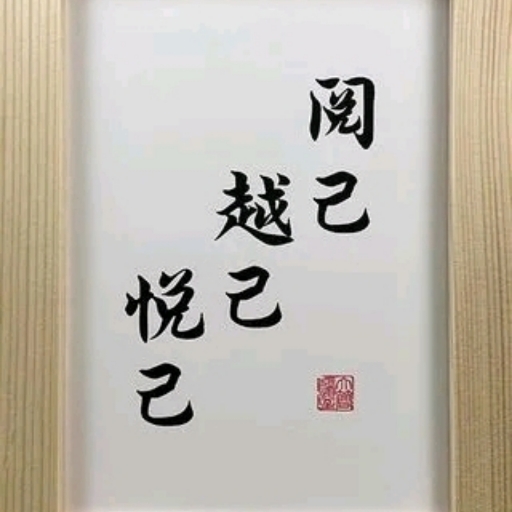 阅己
越己
悦己